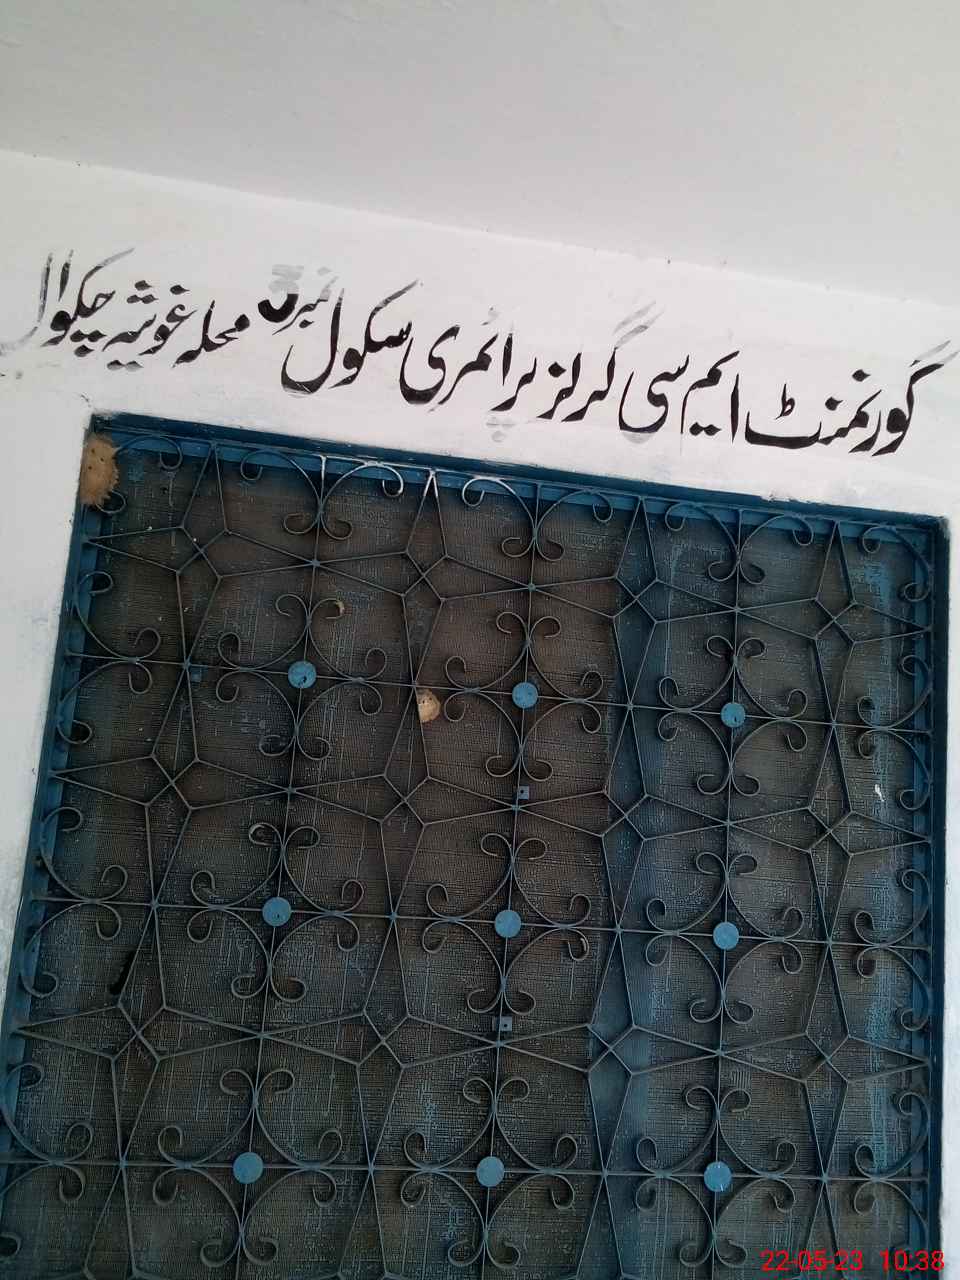 گورنمنٹ ایم سی گرلز پرائمری سکول نمبر محلہ غوثیہ چکوال
22-05-23 10:38